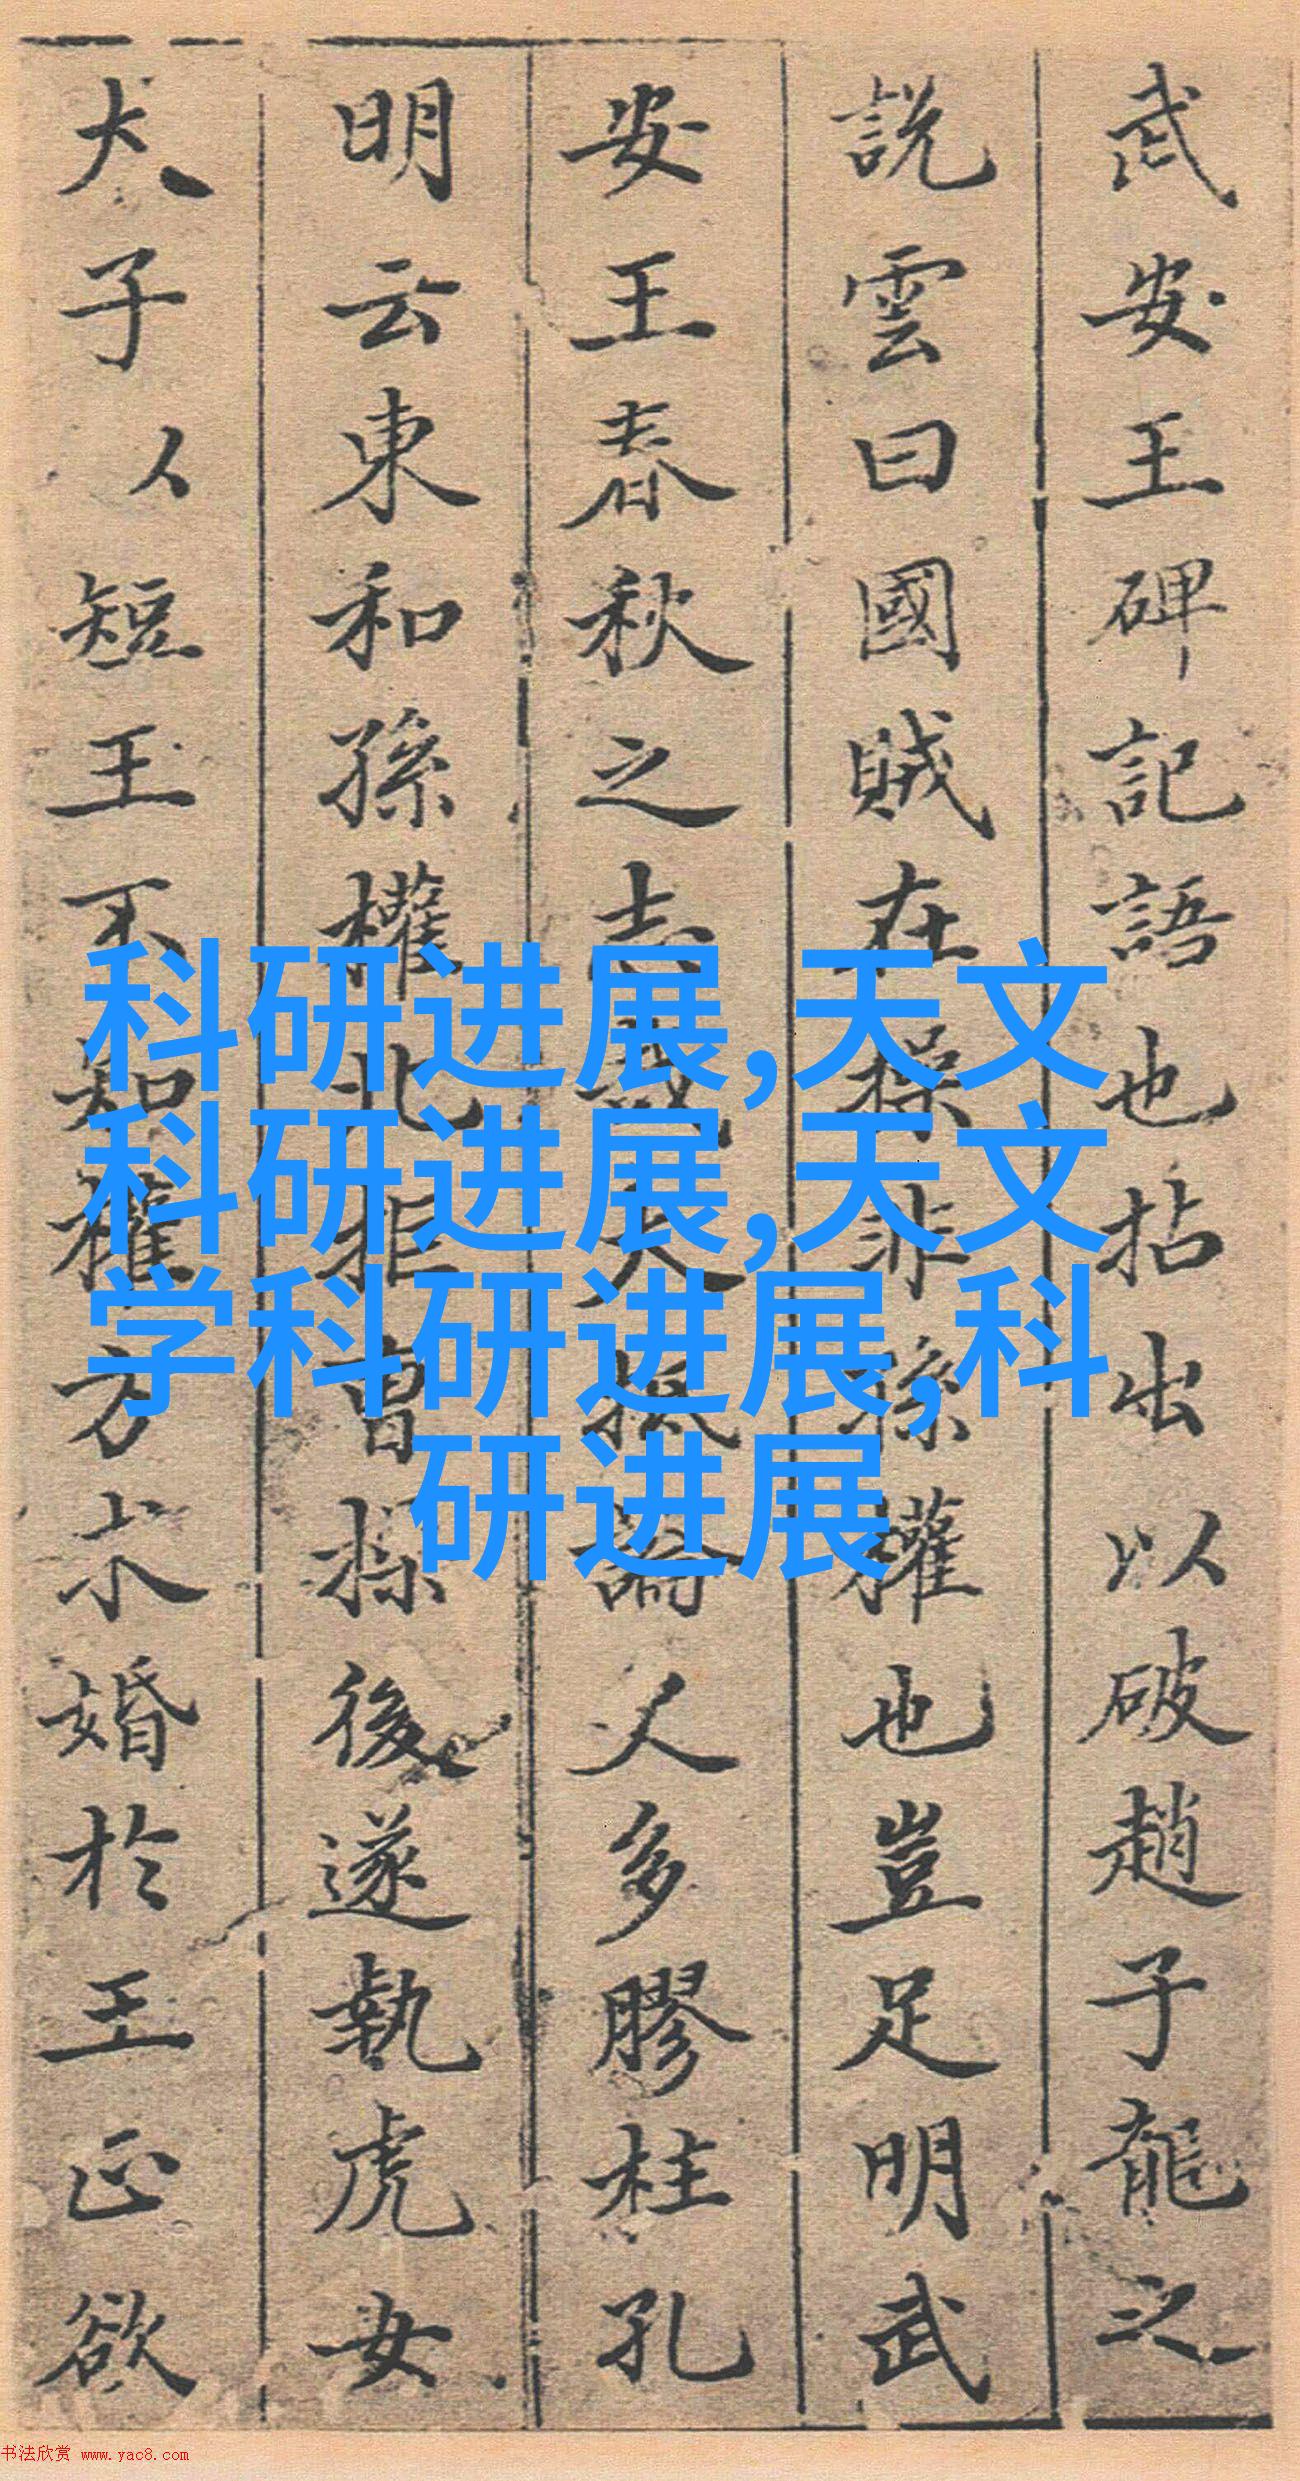 武安王碑記語也拈出以破趙子龍之
說雲曰國賊在操非孫權也豈足明武
安王春秋之志哉大抵論人多膠柱孔
明云東和孫權北拒曹操後遂執虎女
犬子以短王不知權方求婚於王正欲
科研进展,天文
科研进展,天文
学科研进展,科
研进展
书法欣赏 www.yac8.com